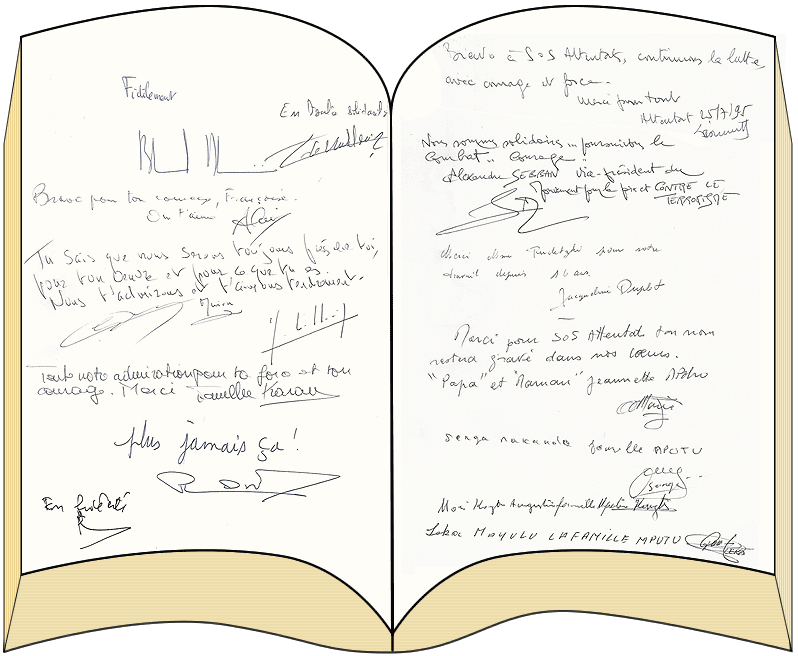 Fidèlement
En toute solidarité
Bravo pour ton courage, Françoise.
On t'aime Alain
Tu sais que nous serons toujours près de toi,
pour ton combat et pour ce que tu es.
Nous t'admirons et t'aimons tendrement.
Toute notre admiration pour ta force et ton
courage. Merci Famille
plus jamais ça !
En fidélité
Bravo à SOS Attentats, continuons la lutte
avec courage et force.
Merci pour tout
Attentat 25/7/95
Nous sommes solidaires... poursuivons le
Combat.. Courage..
Alexandre SEBBAN vice-président du
Mouvement pour la paix et CONTRE LE
TERRORISME
Merci Mme Rudetzki pour votre
travail depuis 16 ans.
Jacqueline
Merci pour SOS Attentat ton nom
restera gravé dans nos cœurs.
"Papa" et "Maman" Jeannette
senga nakanda famille APUTU
Senga
Augustin famille
MAYULU LA FAMILLE MPUTU